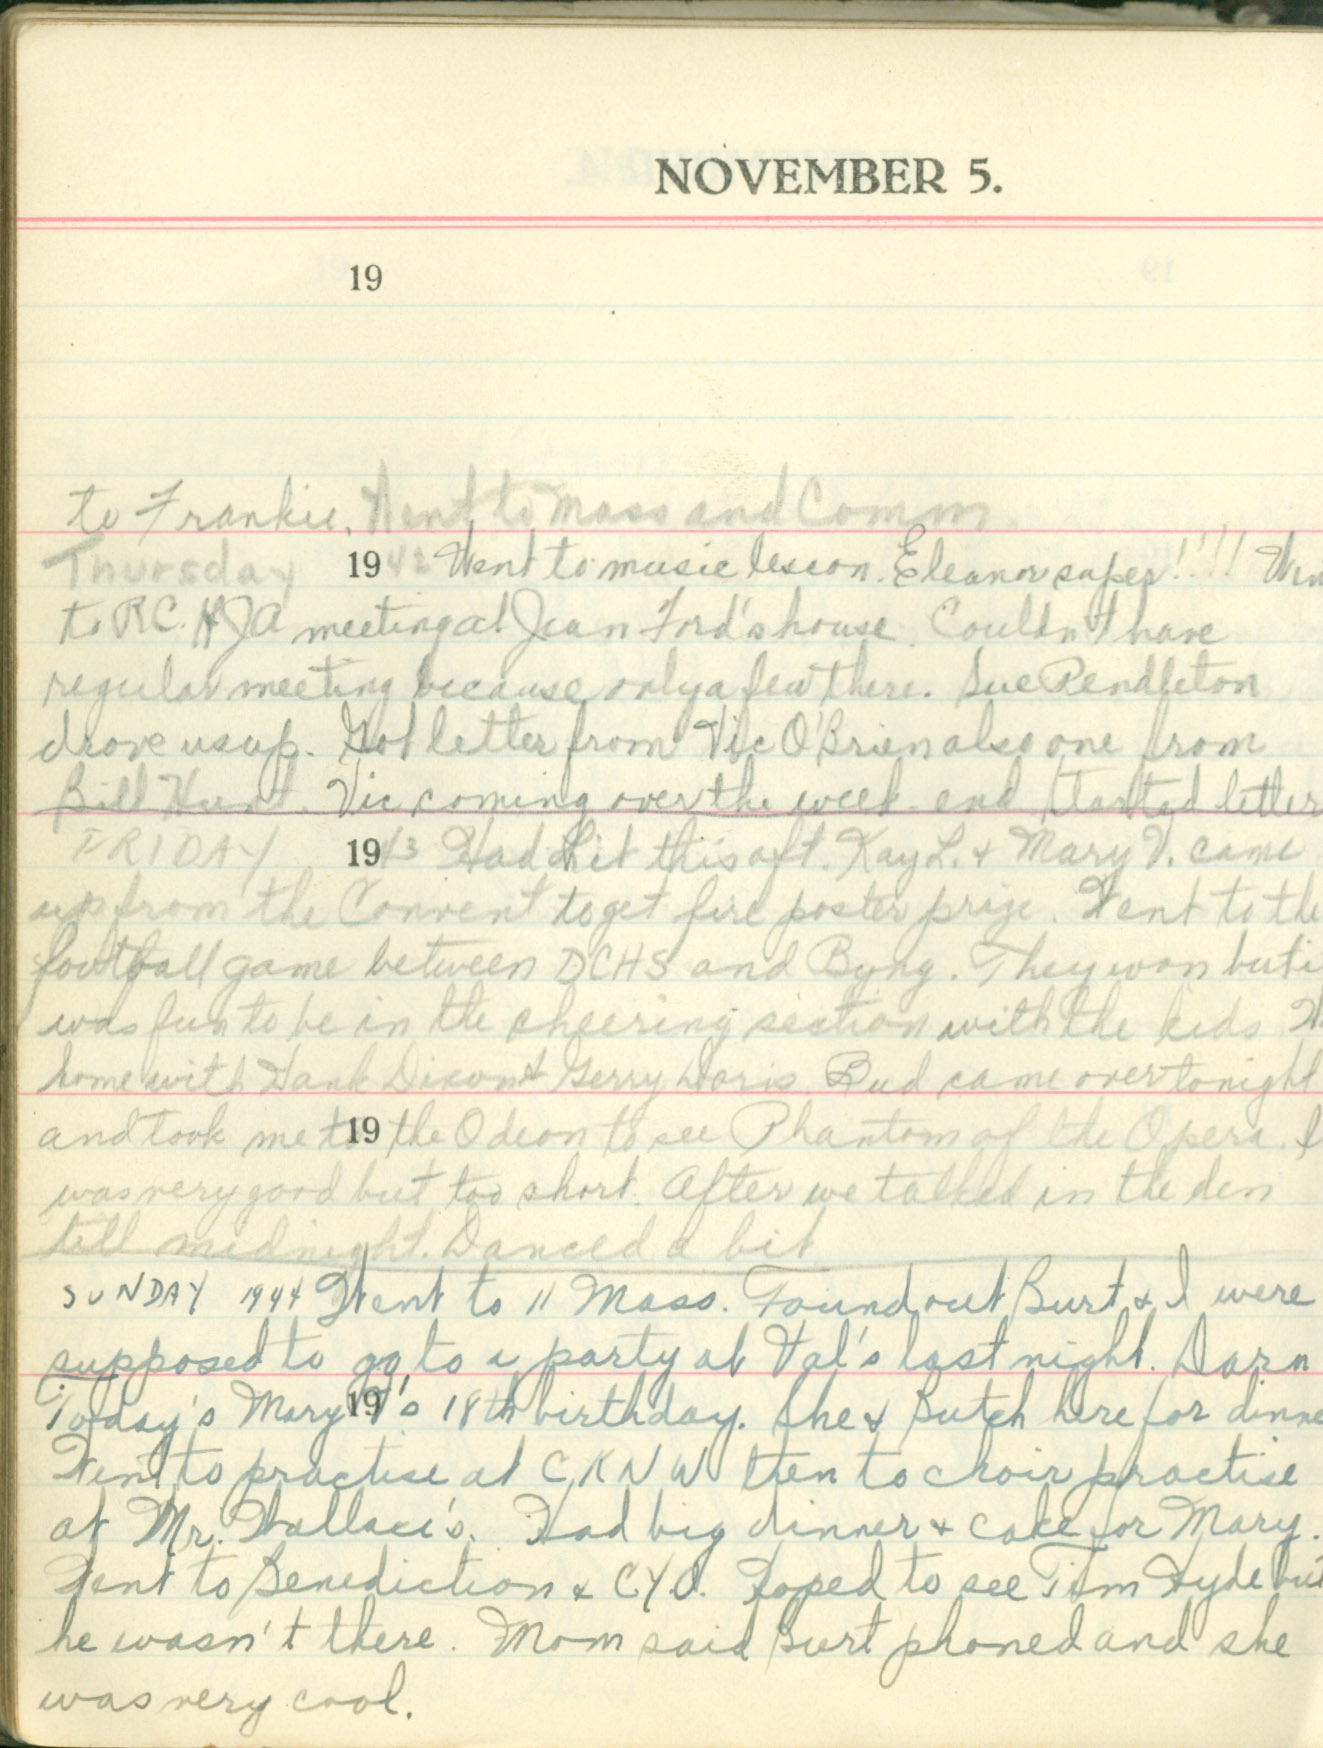 NOVEMBER 5.
19
to Frankie. Went to Mass and Comm.
Thursday 19 42 Went to music lesson. Eleanor super!!!! Wen
to R.C. H JA meeting at Jean Ford's house. Couldn't have
regular meeting because only a few there. Sue Pendleton
drove us up. Got letter from Vic O'Brien also one from
Bill Hunt. Vic coming over the week-end Started letter
FRIDAY 19 43 Had this aft. Kay L. & Mary V. came
up from the Convent to get fire poster prize. Went to the
football game between DCHS and Byng. They won but i
was fun to be in the cheering section with the kids
home with Hank Dixon & Gerry Bud came over tonight
and took me to 19 the Odeon to see Phantom of the Opera. I
was very good but too short. After we talked in the den
till midnight. Danced a bit
SUNDAY 1944 Went to 11 Mass. Found out Burt & I were
supposed to go to a party at Val's last night. Darn
Today's Mary V's 19 18th birthday. She & Butch here for dinne
Went to practise at CKNW then to choir practise
at Mr. Wallace's. Had big dinner & cake for Mary.
Went to Benediction & CYO. Hoped to see Tim Hyde but
he wasn't there. Mom said Burt phoned and she
was very cool.